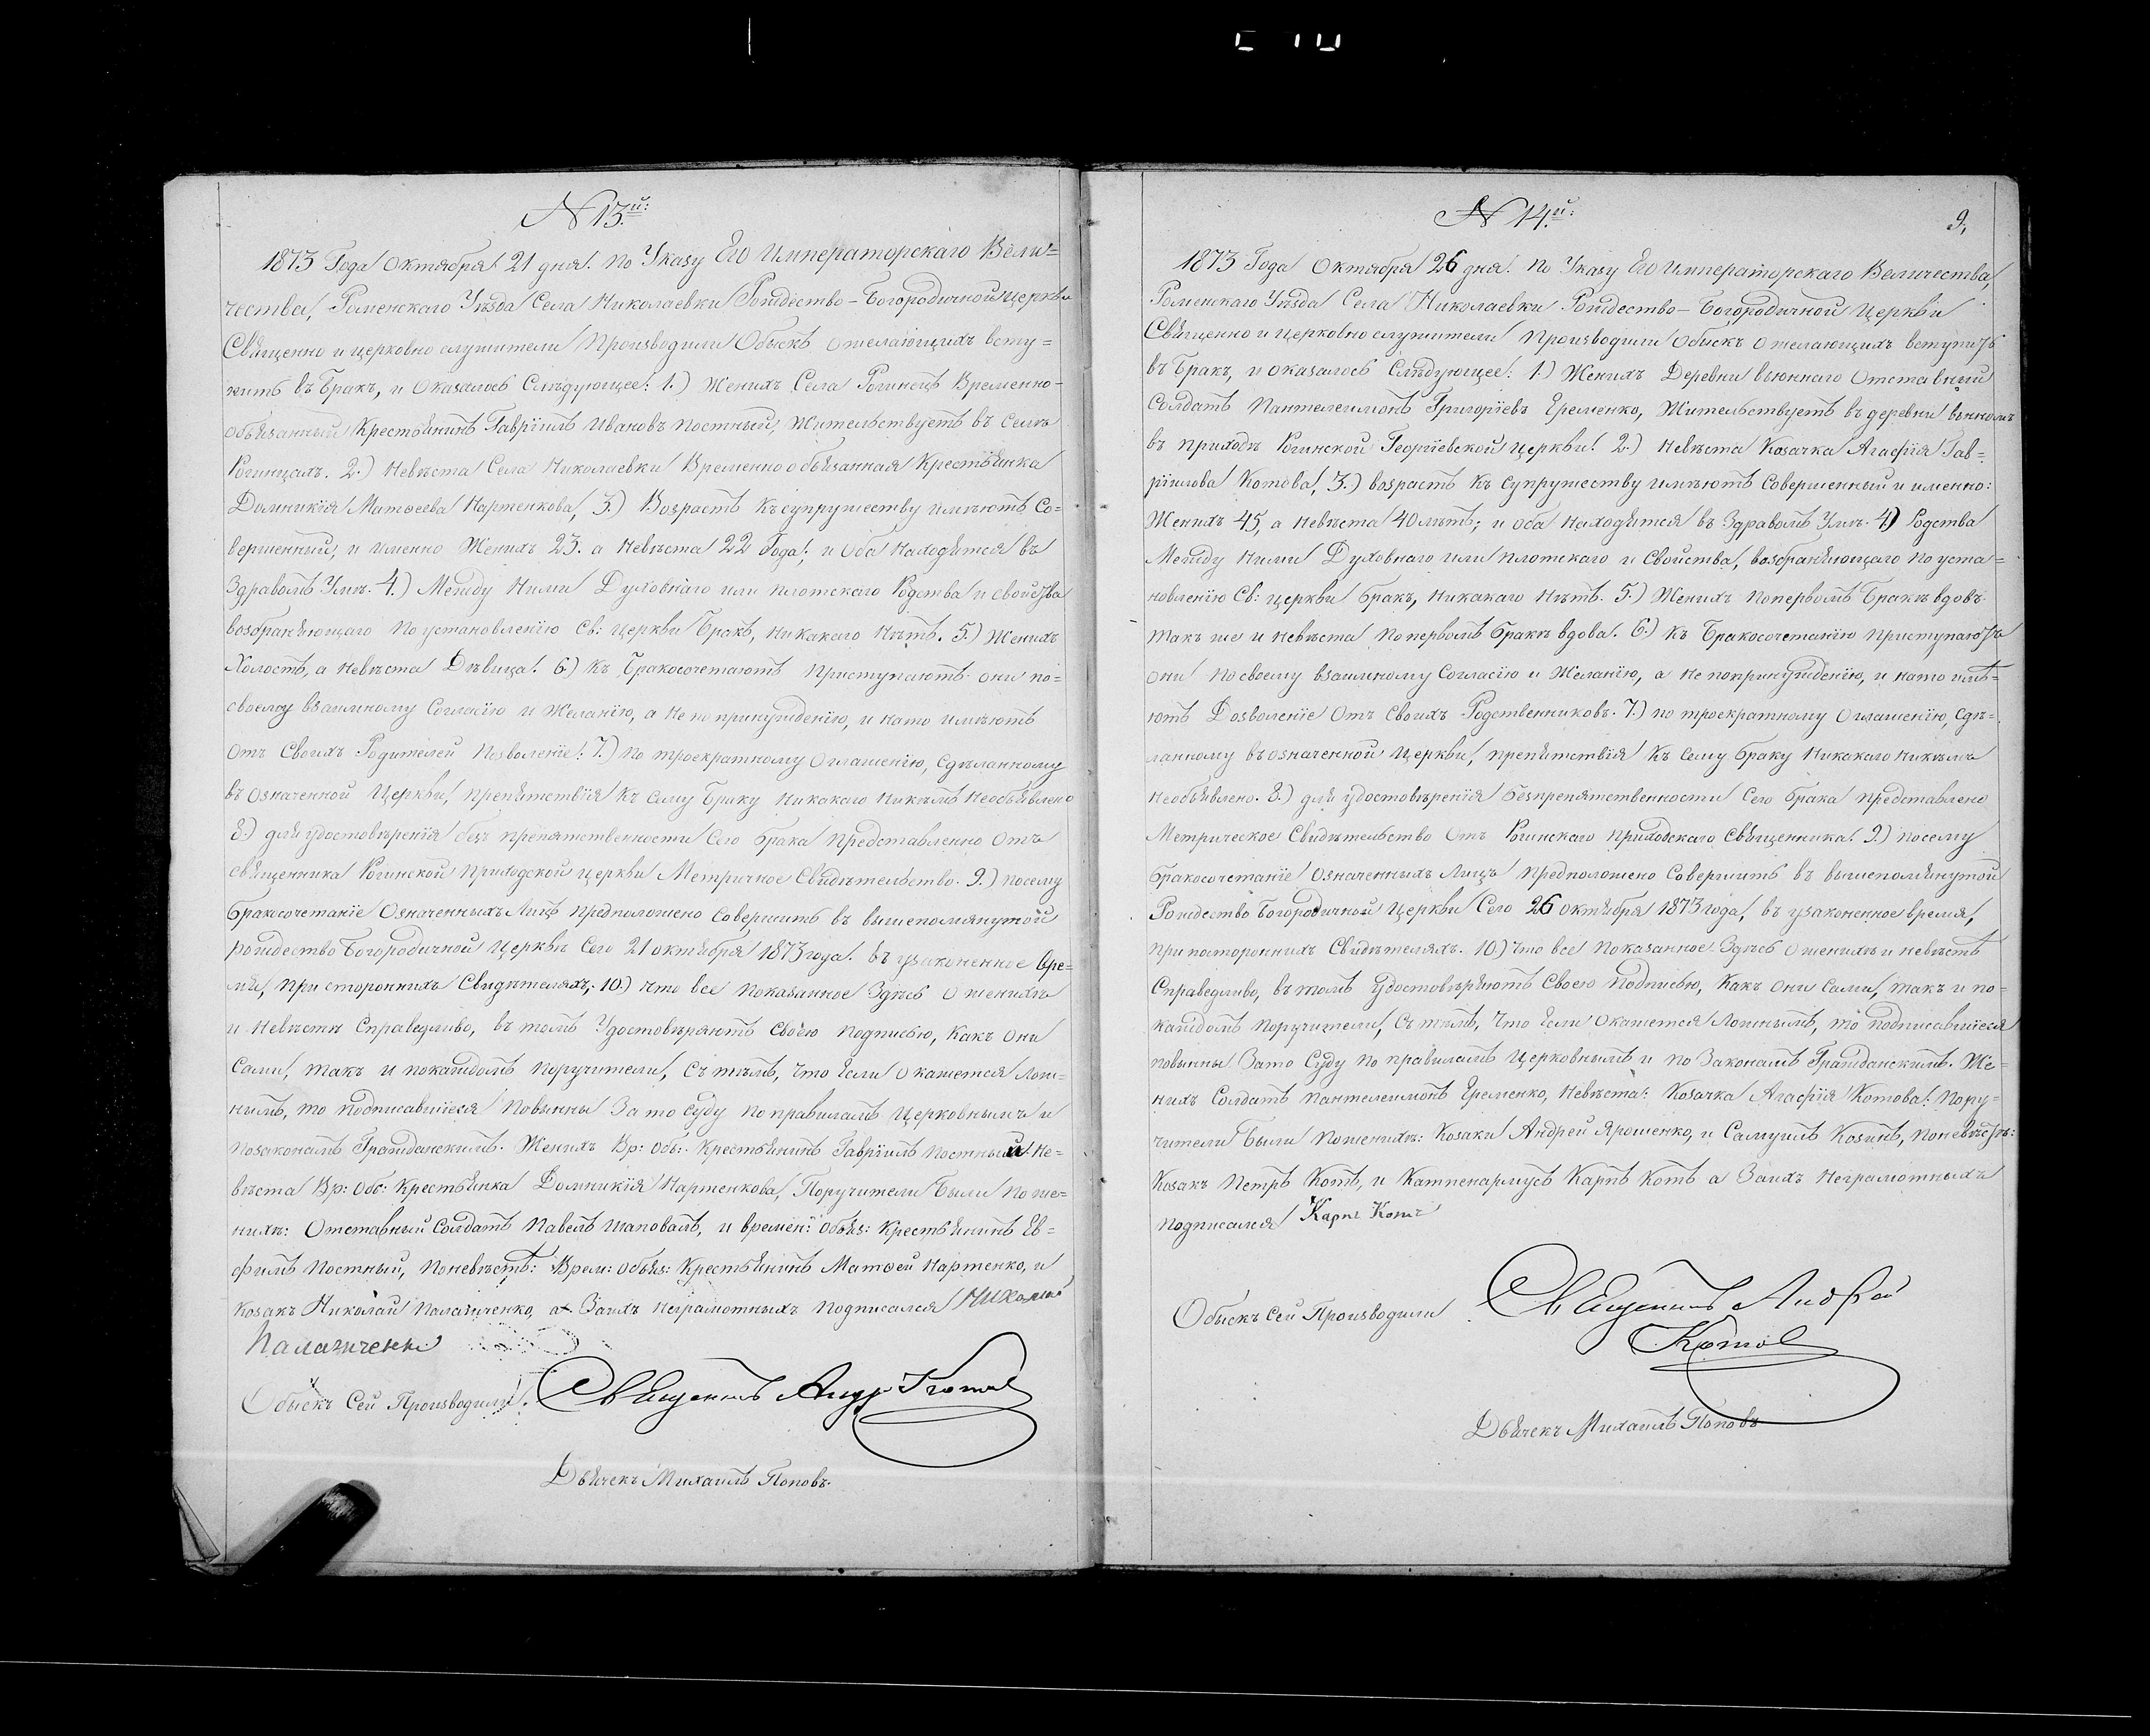 N 13.й:
1873 Года Октября 21 дня. По Указу Его Императорскаго Вели=
чества, Роменскаго Уѣзда Села Николаевки Рождество-Богородичной Церкви
Священно и церковно служители Производили Обыскъ о желающихъ всту=
пить въ Бракъ, и Оказалось Слѣдующее: 1.) Женихъ Села Рогинецъ Временно-
обязанный Крестьянинъ Гавріилъ Ивановъ Постный, Жительствуетъ въ Селѣ
Рогинцахъ. 2.) Невѣста Села Николаевки Временно обязанная Крестьянка
Домникія Матѳеева Нарженкова, 3.) Возрастъ Къ супружеству имѣютъ Со=
вершенный, и именно Женихъ 23. а Невѣста 22 Года; и Оба Находятся въ
Здравомъ Умѣ. 4.) Между Ними Духовнаго или плотскаго Родства и свойства
возбраняющаго По установленію Св: Церкви Бракъ, Никакаго Нѣтъ. 5.) Женихъ
Холостъ, а Невѣста Дѣвица. 6.) Къ Бракосочетаютъ Приступаютъ они по=
своему взаимному Согласію и Желанію, а Не по принужденію, и на то имѣютъ
Отъ Своихъ Родителей Позволеніе: 7.) По троекратному Оглашенію, Сдѣланному
въ Означенной Церкви, Препятствія Къ сему Браку Никакаго Никѣмъ Необъявлено
8.) для удостовѣренія безъ препятственности Сего брака Представленно Отъ
священника Рогинской Приходской церкви Метричное Свидѣтельство. 9.) посему
бракосочетаніе Означенныхъ Лицъ предположено Совершить въ вышепомянутой
рождество Богородичной Церквѣ Сего 21 октября 1873 года. въ узаконенное вре=
мя, При стороннихъ Свидѣтеляхъ; 10.) Что все Показанное Здѣсь О женихѣ
и Невѣстѣ Справедливо, въ томъ Удостовѣряютъ Своею Подписью, Какъ Они
Сами, такъ и покаждомъ Поручители, Съ тѣмъ, Что Если Окажется Лож=
нымъ, то Подписавшіеся Повынны За то Суду По правиламъ Церковнымъ и
Позаконамъ Гражданскимъ. Женихъ Вр: Обя: Крестьянинъ Гавріилъ Постный. Не=
вѣста Вр: Обя: Крестьянка Домникія Нарженкова, Поручители Были По же=
нихѣ: Отставный Солдатъ Павелъ Шаповалъ, и времен: обяз: Крестьянинъ Ев=
фимъ Постный, Поневѣстѣ: Врем: обяз: Крестьянинъ Матѳей Нарженко, и
Козакъ Николай Палазиченко, а За ихъ Неграмотныхъ Подписался Николай
Палазиченко
Обыскъ Сей Производили. Священикъ Андр Котов
Дьячекъ Михаилъ Поповъ.
N 14.й: 9,
1873 Года Октября 26 дня. По Указу Его Императорскаго Величества,
Роменскаго Уѣзда Села Николаевки Рождество-Богородичной Церкви
Священно и церковно служители Производили Обыскъ о желающихъ вступить
въ Бракъ, и оказалось Слѣдующее: 1.) Женихъ Деревни вьюннаго Отставный
Солдатъ Пантелеимонъ Григоріевъ Еременко, Жительствуетъ въ деревни вьюномъ
въ приходѣ Рогинской Георгіевской Церкви. 2.) Невѣста Козачка Агафія Гав=
ріилова Котова, 3.) возрастъ Къ супружеству имѣютъ Совершенный и именно:
Женихъ 45, а Невѣста 40 лѣтъ; и оба Находятся въ Здравомъ Умѣ. 4) Родства
Между Ними Духовнаго или плотскаго и Свойства, возбраняющаго По уста=
новленію Св: церкви бракъ, Никакаго Нѣтъ. 5.) Женихъ По первомъ Бракѣ вдовъ
такъ же и Невѣста По первомъ бракѣ вдова. 6.) Къ Бракосочетанію приступаютъ
они По своему взаимному Согласію и Желанію, а Не попринужденію, и нато имѣ=
ютъ Дозволеніе Отъ Своихъ Родственниковъ. 7.) по троекратному Оглашенію, Сдѣ=
ланному въ означенной Церкви, препятствія Къ Сему браку Никакаго Никѣмъ
Необъявлено. 8.) для удостовѣренія безпрепятственности Сего брака представлено
Метрическое Свидѣтельство Отъ Рогинскаго Приходскаго Священника. 9.) посему
бракосочетаніе Означенныхъ Лицъ Предположено Совершить въ вышепомянутой
Рождество Богородичной Церкви Сего 26 октября 1873 года, въ узаконенное время,
при постороннихъ Свидѣтеляхъ. 10.) Что все Показанное Здѣсь О женихѣ и невѣстѣ
Справедливо, въ томъ Удостовѣряютъ Своею Подписью, Какъ Они Сами, такъ и по=
каждомъ Поручители, Съ тѣмъ, Что Если Окажется Ложнымъ, то Подписавшіеся
повынны За то Суду по правиламъ Церковнымъ и по Законамъ Гражданскимъ. Же=
нихъ Солдатъ Пантелеимонъ Еременко, Невѣста: Козачка Агафія Котова. Пору=
чители Были Поженихѣ: Козаки Андрей Ярошенко, и Самуилъ Козинъ, Поневѣстѣ:
Козакъ Петръ Котъ, и Каптенармусъ Карпъ Котъ а За ихъ Неграмотныхъ
Подписался Карпъ Котъ
Обыскъ Сей Производили Священикъ Андрей
Котов
Дьячекъ Михаилъ Поповъ